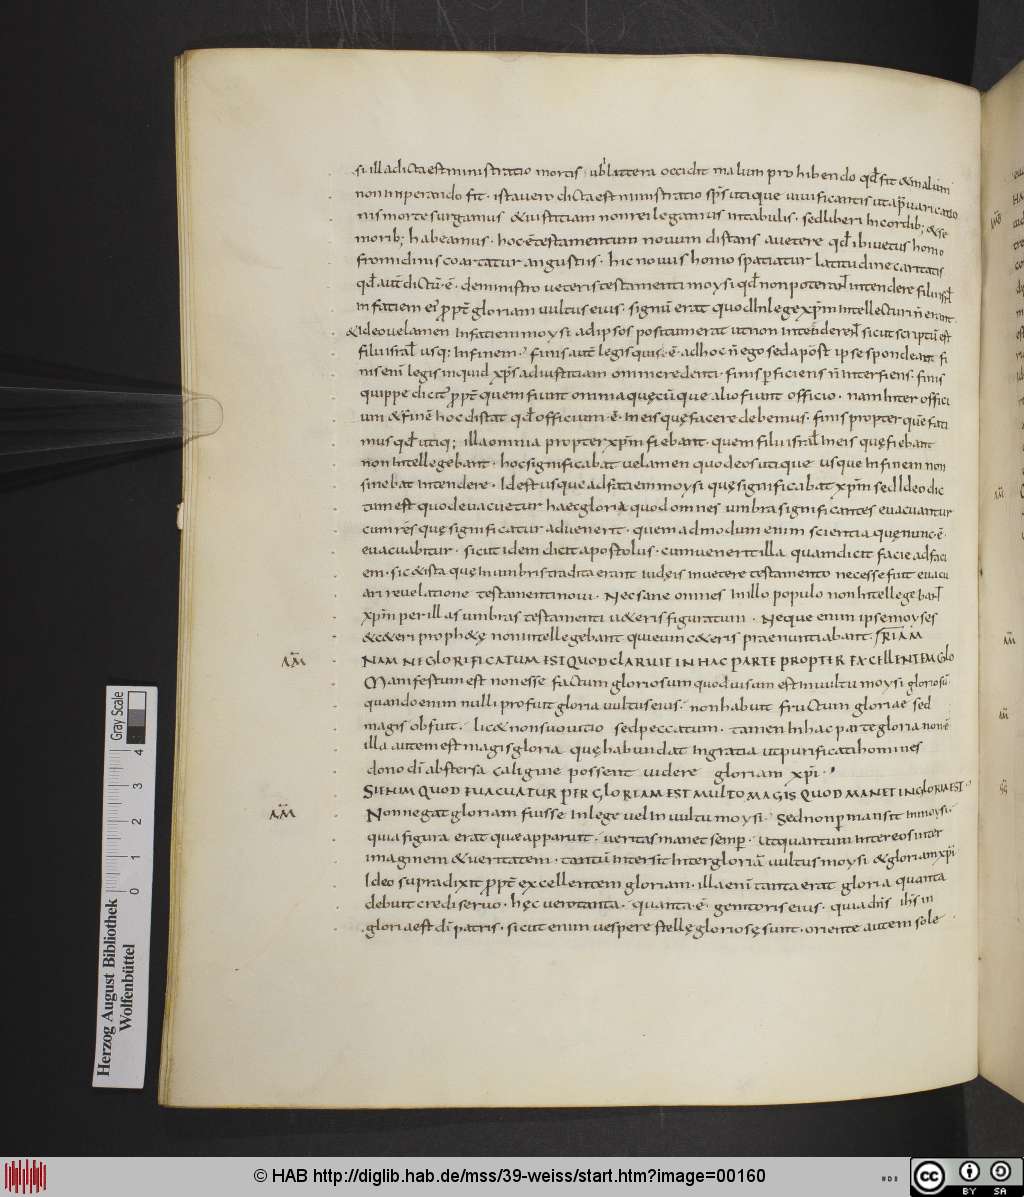 si illa dicta est ministratio mortis · ubi littera occidit malum prohibendo qđ fit & malum
non inperando fit · ista vero dicta est ministratio sp̄s utique vivificantis ut a p̄varicatio
nis morte surgamus & iustitiam non rei legamus in tabulis · sed liberi in cordib; & se
morib; habeamus · hoc ē testamentum novum distans a vetere qđ ibi vetus homo
fromidinis coartatur angustiis · hic novus homo spatiatur latitudine caritatis
qđ aut̄ dictū · ē · de ministro veteris testamenti moysi qđ non poterant intendere filii isrl̄
in faciem ei' ꝓpt̄ gloriam vultus eius · signū erat quod in lege xp̄m intellecturi n̄ erant
& ideo velamen in faciem moysi ad ipsos positum erat ut non intenderent sicut scriptū est
filii isrl̄ usq; in finem · finis aut̄ legis quis · ē · ad hoc n̄ ego sed apost̄ ipse spondeat fi
nis enim legis inquid xp̄s ad iustitiam omni credenti · finis perficiens n̄ interfiens · finis
quippe dicit' ꝓpt̄ quem fiunt omnia quęcūque alio fiunt officio · nam inter offici
um & finē hoc distat qđ officium · ē · in eis quę facere debemus · finis propter quē faci
mus qđ utiq; illa omnia propter xp̄m fiebant · quem filii isrl̄ in eis quę fiebant
non intellegebant · hoc significabat velamen quod eos utique usque in finem non
sinebat intendere · Id est usque ad faciem moysi quę significabat xp̄m sed Ideo dic
tum est quod evacuetur haec gloria quod omnes umbra significantes evacuantur
cum res quę significatur advenerit · quem admodum enim scientia quę nunc · ē ·
evacuabitur · sicut idem dicit apostolus · cum venerit illa quam dicit facie ad faci
em · sic & ista quę in umbris tradita erant iudęis in vetere testamento necesse fuit evacu
ari revelatione testamenti novi · Nec sane omnes in illo populo non intellegebant
xp̄m per illas umbras testamenti u&eris figuratum · Neque enim ipse moyses
& c&eri proph&ę non intellegebant qui eum c&eris praenuntiabant ·
NAM NE GLORIFICATUM EST QUOD CLARUIT IN HAC PARTE PROPTER EXCELLENTEM GLO
RIAM
AM̄
Manifestum est non esse factum gloriosum quod visum est in vultu moysi gloriosū ·
quando enim nulli profuit gloria vultus eius · non habuit fructum gloriae sed
magis obfuit · lic& non suo vitio sed peccatum · tamen in hac parte gloria non ē
illa autem est magis gloria quę habundat in gratia ut purificati homines
dono dī abstersa caligine possent videre gloriam xp̄i ·
SI ENIM QUOD EVACUATUR PER GLORIAM EST MULTO MAGIS QUOD MANET IN GLORIA EST
AM̄
Non negat gloriam fuisse in lege vel in vultu moysi · sed non permansit in moysi ·
quia figura erat que apparuit · veritas manet semp̄ · ut quantum inter eos inter
imaginem & veritatem · tantū intersit inter gloriā vultus moysi & gloriam xp̄i
Ideo supra dixit ꝓpt̄ excellentem gloriam · illa enī tanta erat gloria quanta
debuit credi servo · hęc vero tanta · quanta · ē · genitoris eius · quia dn̄s ih̄s in
gloria est dī patris · sicut enim vespere stellę gloriosę sunt · oriente autem sole
Gray Scale
0 1 2 3 4
Herzog August Bibliothek
Wolfenbüttel
© HAB http://diglib.hab.de/mss/39-weiss/start.htm?image=00160
cc BY SA